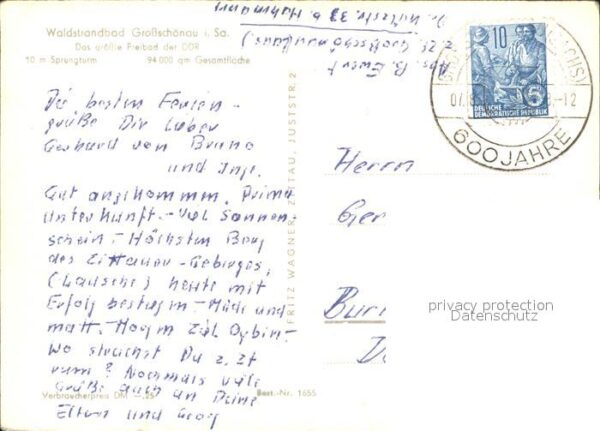 Waldstrandbad Großschönau i. Sa.
Das größte Freibad der DDR
10 m Sprungturm 94 000 qm Gesamtfläche
Die besten Ferien-
grüße Dir Lieber
Gerhard von Bruno
und Inge.
Gut angekommen. Prima
Unterkunft - Viel Sonnen-
schein - Höchsten Berg
des Zittauer-Gebirges,
(Lausche) heute mit
Erfolg bestiegen - Müde und
matt. Morgen Ziel Oybin.
Wo streichst Du z. Zt
rum? Nochmals viele
Grüße auch an Deine
Eltern und Georg
Verbraucherpreis DM -,25
Best.-Nr. 1655
FRITZ WAGNER, ZITTAU, JUSTSTR. 2
Abs. B. Ewert
z. Zt. Großschönau (Sachs)
10
5
DEUTSCHE
DEMOKRATISCHE REPUBLIK
-12
600 JAHRE
Herrn
Ger
Bur
privacy protection
Datenschutz